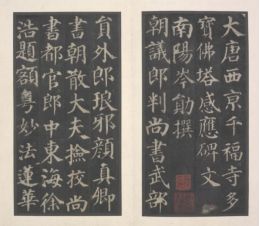 大唐西京千福寺多
寶佛塔感應碑文
南陽岑勛撰
朝議郎判尚書武部
員外郎琅邪顏真卿
書朝散大夫撿校尚
書都官郎中東海徐
浩題額粵妙法蓮華